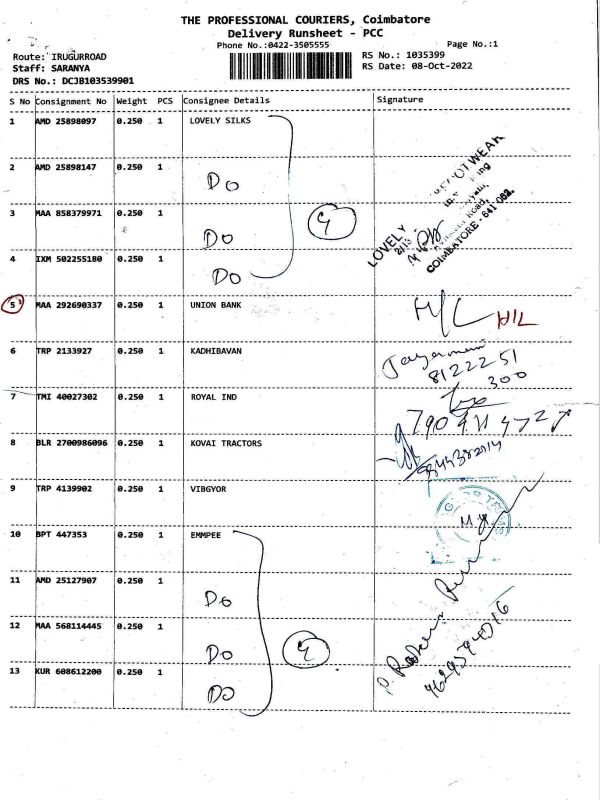 THE PROFESSIONAL COURIERS, Coimbatore
Delivery Runsheet - PCC
Phone No.:0422-3505555 Page No.:1
Route: IRUGURROAD RS No.: 1035399
Staff: SARANYA RS Date: 08-Oct-2022
DRS No.: DCJB103539901
S No Consignment No Weight PCS Consignee Details Signature
1 AMD 25898097 0.250 1 LOVELY SILKS
2 AMD 25898147 0.250 1
Do
3 MAA 858379971 0.250 1
Do
4 IXM 502255180 0.250 1
Do
4
LOVELY
COIMBATORE - 641 062.
5 MAA 292690337 0.250 1 UNION BANK
H/L H/L
6 TRP 2133927 0.250 1 KADHIBAVAN
8122251
300
7 TMI 40027302 0.250 1 ROYAL IND
8 BLR 2700986096 0.250 1 KOVAI TRACTORS
9 TRP 4139902 0.250 1 VIBGYOR
10 BPT 447353 0.250 1 EMMPEE
11 AMD 25127907 0.250 1
Do
12 MAA 568114445 0.250 1
Do
13 KUR 608612200 0.250 1
Do
4